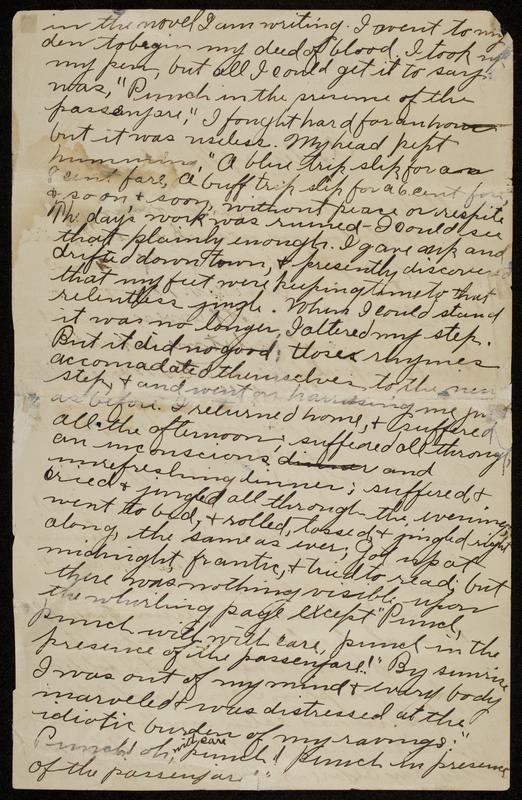 in the novel I am writing. I went to my
den to begin my deed of blood, I took up
my pen, but all I could get it to say
was, "Punch in the presense of the
passenjare," I fought hard for an hour
but it was useless. My head kept
humming, "A blue trip slip for a
8 cent fare, a buff trip slip for a 6 cent fare,
& so on & soon, without peace or respite
The days work was ruined - I could see
that plainly enough. I gave up and
drifted down town, & presently discovered
that my feet were keeping time to that
relentless jingle. When I could stand
it was no longer, I altered my step.
But it did no good; those rhymes
accomadated themselves to the new
step & and went on harrassing me just
as before. I returned home, & suffered
all the afternoon; suffered all through
an unconscious dinner and
unrefreshing dinner; suffered, &
cried & jingled all through the evening,
went to bed, & rolled, tossed, & jingled right
along, the same as ever; Got up at
midnight frantic, & tried to read; but
there was nothing visible upon
the whirling page except "Punch,
punch with with care, punch in the
presence of the passenjare!" By sunrise
I was out of my mind & every body
marveled & was distressed at the
idiotic burden of my ravings:"
Punch! oh, with care punch! Punch in presence
of the passenjare"